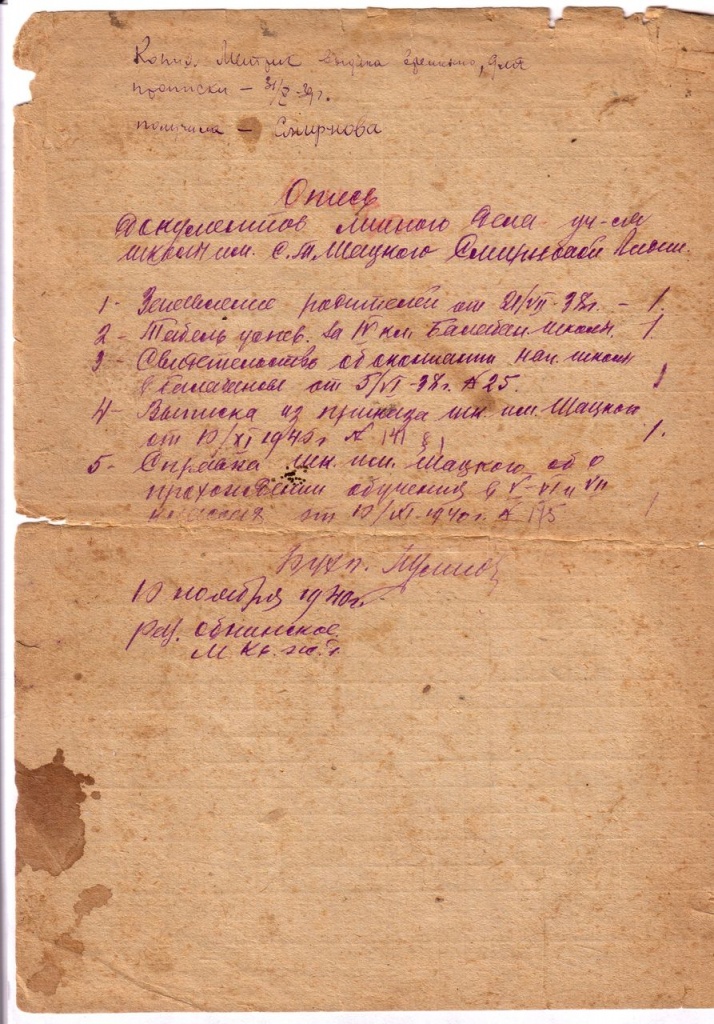 Копия Метрик выдана временно, для
прописки – 31/X-39г.
получила – Смирнова
Опись
Документов личного дела уч-ся
школы им. С.Т. Шацкого Смирновой
1- Заявление родителей от 21/VII-38г. – 1.
2- Табель успев. за IV кл. Балабан. школы. 1.
3- Свидетельство об окончании нач. школы
от 5/VI-38г. № 25. 1
4- Выписка из приказа шк. им. Шацкого
от 10/XI 1940г. № 1.
5- Справка шк. им. Шацкого об
прохождении обучения в V-VI и VII
классах от 10/XI-1940г. № 175 1
10 ноября 1940г.
раз. Обнинское
М. К. ж.д.